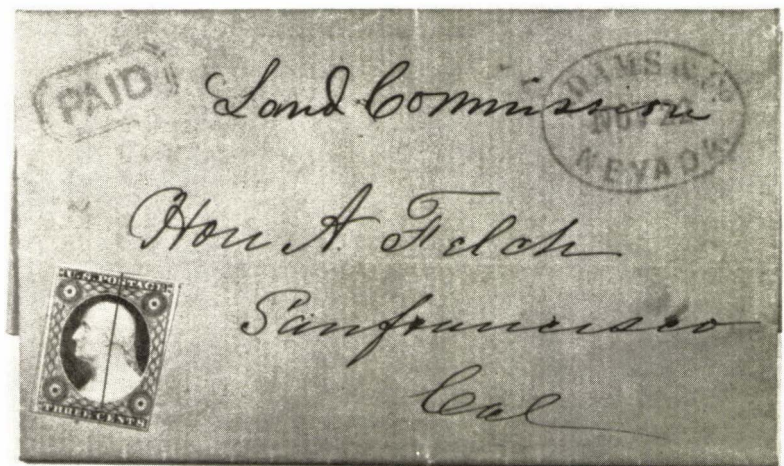 PAID
Land Commission
ADAMS & CO
NOV 22
NEVADA
Hon A. Felch
Sanfrancisco
Cal
THREE CENTS